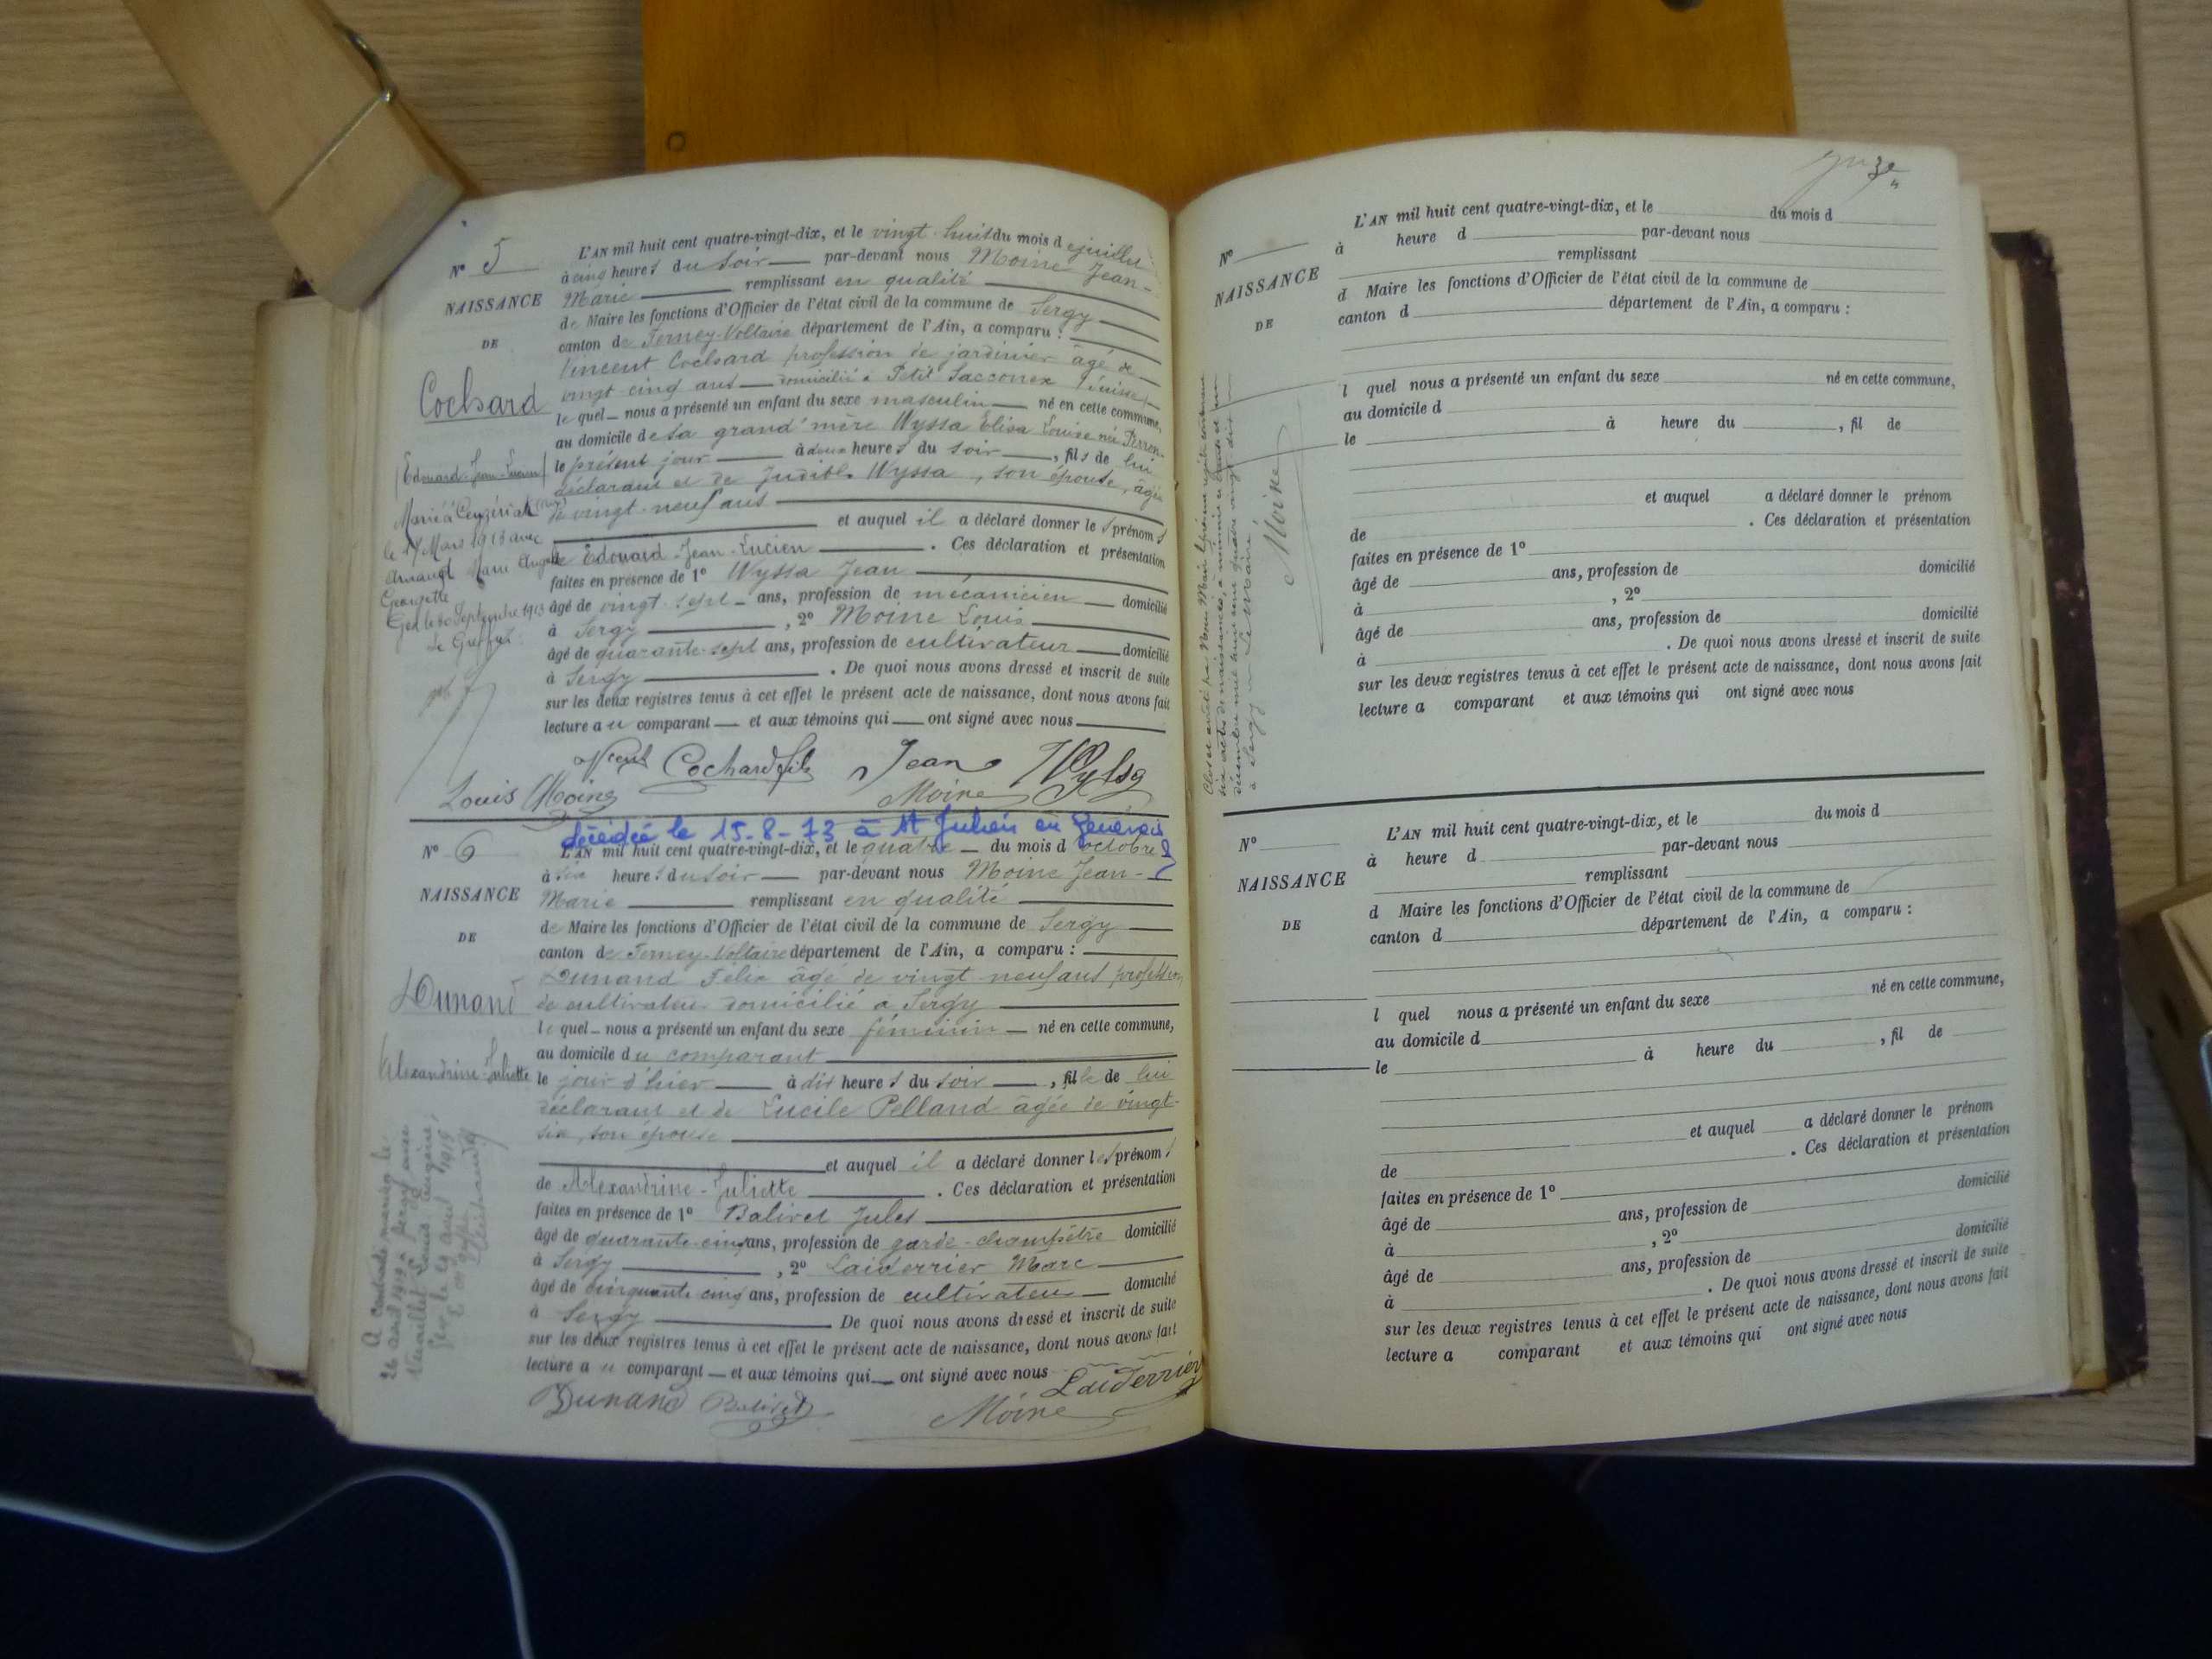 N° 5
NAISSANCE
DE
Cochard
Edouard-Jean-Lucien
Marié à Ceyzériat
le 17 Mars 1913 avec
Armand Marie Angèle
Georgette
Gex le 20 Septembre 1913
Le Greffier
L'AN mil huit cent quatre-vingt-dix, et le vingt-huit du mois de juillet
à cinq heures du soir par-devant nous Moine Jean-
Marie remplissant en qualité
de Maire les fonctions d'Officier de l'état civil de la commune de Sergy
canton de Ferney-Voltaire département de l'Ain, a comparu :
Vincent Cochard profession de jardinier âgé de
vingt cinq ans domicilié à Petit Sacconex (Suisse)
le quel nous a présenté un enfant du sexe masculin né en cette commune,
au domicile de sa grand'mère Wyssa Elisa Louise née Perron
le présent jour à deux heures du soir, fils de lui
déclarant et de Judith Wyssa, son épouse, âgée
de vingt-neuf ans
et auquel il a déclaré donner les prénoms
de Edouard-Jean-Lucien. Ces déclaration et présentation
faites en présence de 1° Wyssa Jean
âgé de vingt-sept ans, profession de mécanicien domicilié
à Sergy, 2° Moine Louis
âgé de quarante-sept ans, profession de cultivateur domicilié
à Sergy. De quoi nous avons dressé et inscrit de suite
sur les deux registres tenus à cet effet le présent acte de naissance, dont nous avons fait
lecture au comparant et aux témoins qui ont signé avec nous
Cochard fils Jean Wyssa
Louis Moine Moine
décédée le 15-8-73 à St Julien en Genevois
N° 6
NAISSANCE
DE
Dunand
Alexandrine-Juliette
A contracté mariage le
26 avril 1919 à Sergy avec
Louis Eugène
Gex, le 29 avril 1919
L'AN mil huit cent quatre-vingt-dix, et le quatre du mois d'octobre
à six heures du soir par-devant nous Moine Jean-
Marie remplissant en qualité
de Maire les fonctions d'Officier de l'état civil de la commune de Sergy
canton de Ferney-Voltaire département de l'Ain, a comparu :
Dunand Félix âgé de vingt-neuf ans profession
de cultivateur domicilié à Sergy
le quel nous a présenté un enfant du sexe féminin né en cette commune,
au domicile du comparant
le jour d'hier à dix heures du soir, fille de lui
déclarant et de Lucile Pelland âgée de vingt-
six, son épouse
et auquel il a déclaré donner les prénoms
de Alexandrine-Juliette. Ces déclaration et présentation
faites en présence de 1° Balivet Jules
âgé de quarante-cinq ans, profession de garde-champêtre domicilié
à Sergy, 2° Laiderrier Marc
âgé de cinquante cinq ans, profession de cultivateur domicilié
à Sergy De quoi nous avons dressé et inscrit de suite
sur les deux registres tenus à cet effet le présent acte de naissance, dont nous avons fait
lecture au comparant et aux témoins qui ont signé avec nous Laiderrier
Dunand Balivet Moine
onze
Clos et arrêté par Nous Maire le présent registre contenant
six actes de naissance, à minuit le trente et un
décembre mil huit cent quatre vingt-dix
à Sergy Le Maire
Moine
N°
NAISSANCE
DE
L'AN mil huit cent quatre-vingt-dix, et le du mois d
à heure d par-devant nous
remplissant
d Maire les fonctions d'Officier de l'état civil de la commune de
canton d département de l'Ain, a comparu :
l quel nous a présenté un enfant du sexe né en cette commune,
au domicile d
le à heure du , fil de
et auquel a déclaré donner le prénom
de . Ces déclaration et présentation
faites en présence de 1°
âgé de ans, profession de domicilié
à , 2°
âgé de ans, profession de domicilié
à . De quoi nous avons dressé et inscrit de suite
sur les deux registres tenus à cet effet le présent acte de naissance, dont nous avons fait
lecture a comparant et aux témoins qui ont signé avec nous
N°
NAISSANCE
DE
L'AN mil huit cent quatre-vingt-dix, et le du mois d
à heure d par-devant nous
remplissant
d Maire les fonctions d'Officier de l'état civil de la commune de
canton d département de l'Ain, a comparu :
l quel nous a présenté un enfant du sexe né en cette commune,
au domicile d
le à heure du , fil de
et auquel a déclaré donner le prénom
de . Ces déclaration et présentation
faites en présence de 1°
âgé de ans, profession de domicilié
à , 2°
âgé de ans, profession de domicilié
à . De quoi nous avons dressé et inscrit de suite
sur les deux registres tenus à cet effet le présent acte de naissance, dont nous avons fait
lecture a comparant et aux témoins qui ont signé avec nous